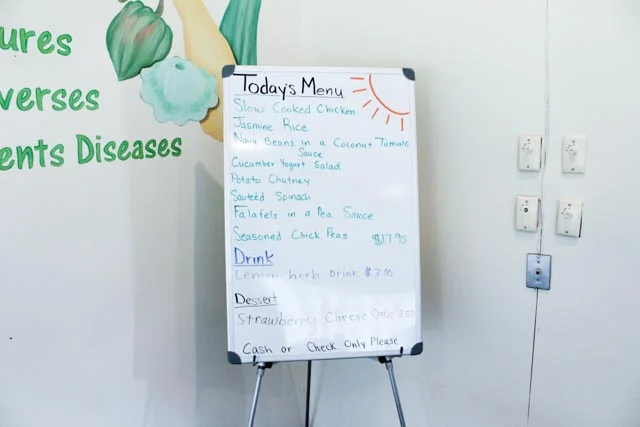 ures
verses
ents Diseases
Today's Menu
Slow Cooked Chicken
Jasmine Rice
Navy Beans in a Coconut Tomato
Sauce
Cucumber Yogurt Salad
Potato Chutney
Sauteéd Spinach
Falafels in a Pea Sauce
Seasoned Chick Peas $17.95
Drink
Lemon herb Drink $3.00
Dessert
Strawberry Cheese Cake 3.50
Cash or Check Only Please